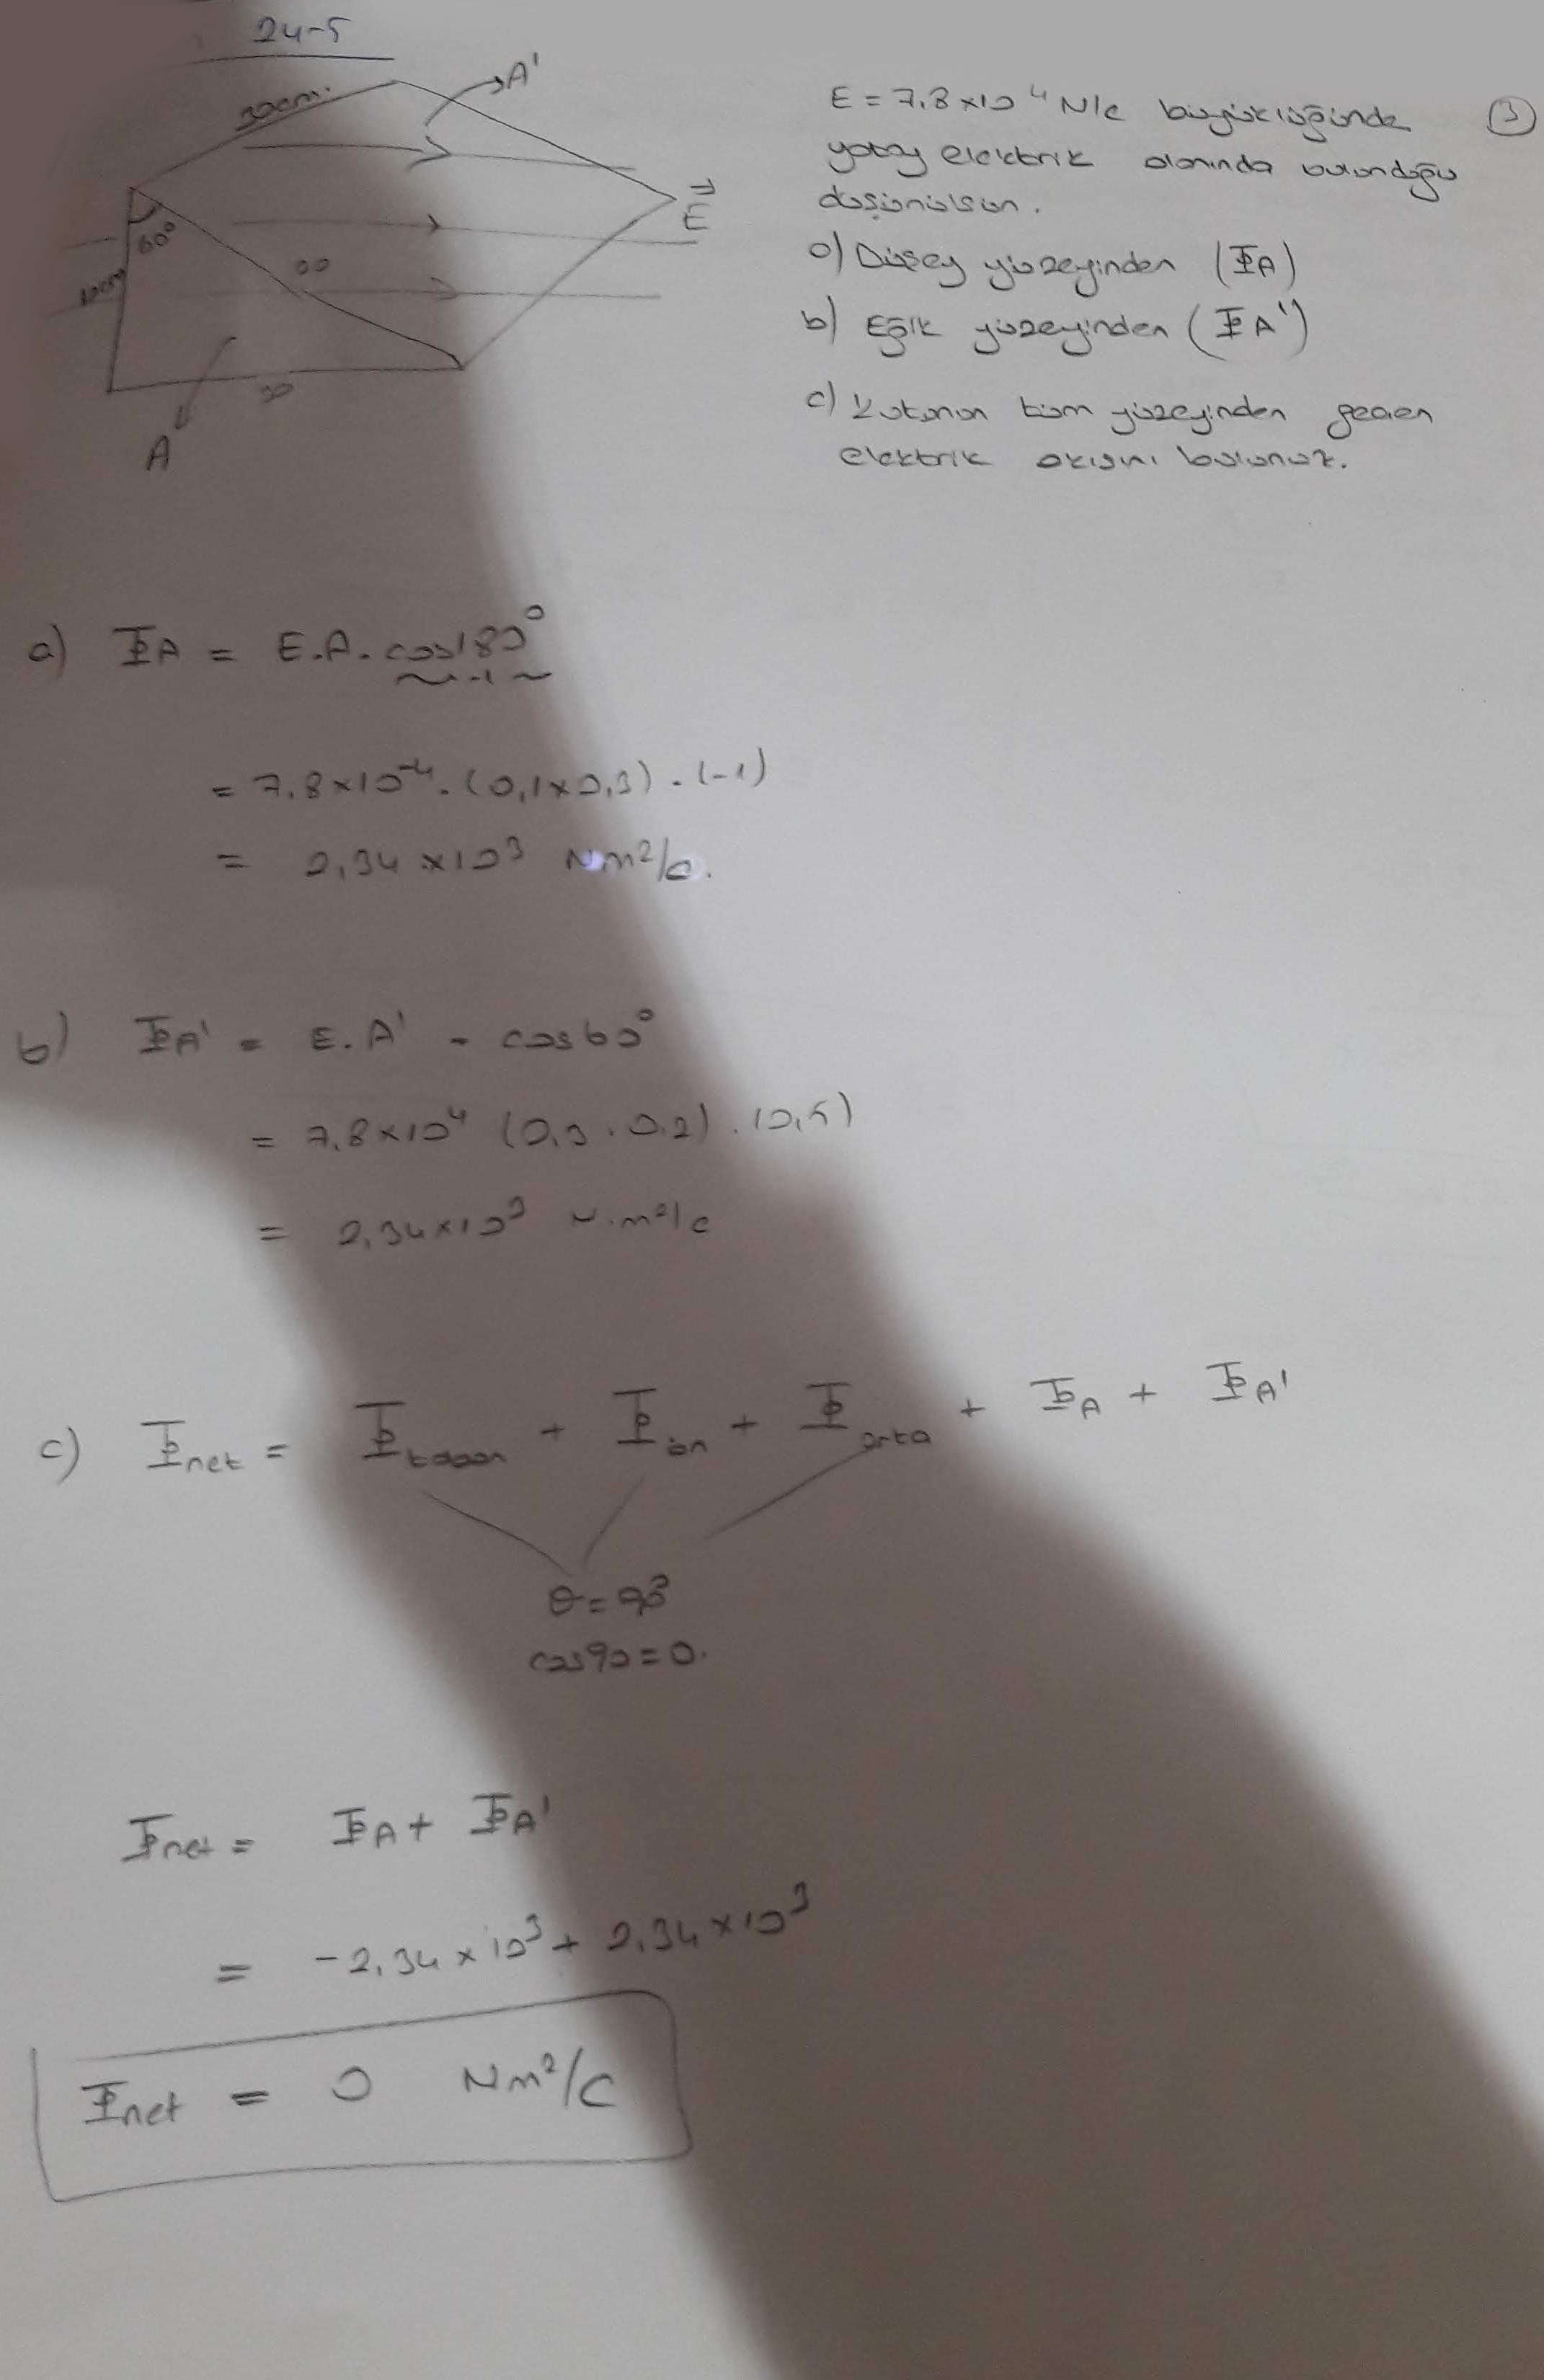 24-5
30cm.
A'
E
60°
10cm
A
E = 7,8 x 10⁴ N/c büyüklüğünde (3)
yatay elektrik alanında bulunduğu
düşünülsün.
a) Düşey yüzeyinden (ΦA)
b) Eğik yüzeyinden (ΦA')
c) Kutunun tüm yüzeyinden geçen
elektrik akısını bulunuz.
a) ΦA = E.A. cos180°
-1
= 7,8x10⁴. (0,1x0,3) . (-1)
= 2,34 x10³ Nm²/c.
b) ΦA' = E. A' . cos60°
= 7,8x10⁴ (0,3 . 0,2) . (0,5)
= 2,34x10³ N.m²/c
c) Φnet = Φtaban + Φön + Φarka + ΦA + ΦA'
θ = 90°
cos90 = 0.
Φnet = ΦA + ΦA'
= -2,34 x 10³ + 2,34 x 10³
Φnet = 0 Nm²/C